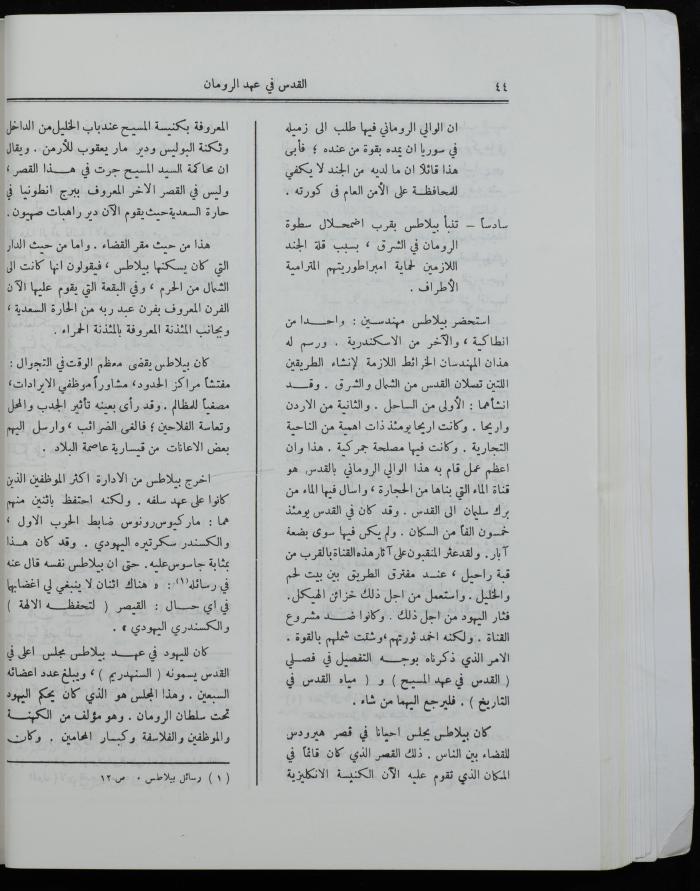 ٤٤
القدس في عهد الرومان
ان الوالي الروماني فيها طلب الى زميله
في سوريا ان يمده بقوة من عنده ؛ فأبى
هذا قائلا ان ما لديه من الجند لا يكفي
للمحافظة على الأمن العام في كورته .
سادساً – تنبأ بيلاطس بقرب اضمحلال سطوة
الرومان في الشرق ، بسبب قلة الجند
اللازمين لحماية امبراطوريتهم المترامية
الأطراف .
استحضر بيلاطس مهندسين : واحداً من
انطاكية ، والآخر من الاسكندرية . ورسم له
هذان المهندسان الخرائط اللازمة لإنشاء الطريقين
اللتين تصلان القدس من الشمال والشرق . وقد
انشأهما : الأولى من الساحل . والثانية من الاردن
واريحا . وكانت اريحا يومئذ ذات اهمية من الناحية
التجارية . وكانت فيها مصلحة جمركية . هذا وان
اعظم عمل قام به هذا الوالي الروماني بالقدس هو
قناة الماء التي بناها من الحجارة ، واسال فيها الماء من
برك سليمان الى القدس . وقد كان في القدس يومئذ
خمسون الفاً من السكان . ولم يكن فيها سوى بضعة
آبار . ولقد عثر المنقبون على آثار هذه القناة بالقرب من
قبة راحيل ، عند مفترق الطريق بين بيت لحم
والخليل . واستعمل من اجل ذلك خزائن الهيكل .
فثار اليهود من اجل ذلك . وكانوا ضد مشروع
القناة . ولكنه اخمد ثورتهم ، وشتت شملهم بالقوة .
الامر الذي ذكرناه بوجه التفصيل في فصلي
( القدس في عهد المسيح ) و ( مياه القدس في
التاريخ ) . فليرجع اليهما من شاء .
كان بيلاطس يجلس احيانا في قصر هيرودس
للقضاء بين الناس . ذلك القصر الذي كان قائمًا في
المكان الذي تقوم عليه الآن الكنيسة الانكليزية
المعروفة بكنيسة المسيح عند باب الخليل من الداخل
وثكنة البوليس ودير مار يعقوب للأرمن . ويقال
ان محاكمة السيد المسيح جرت في هذا القصر ،
وليس في القصر الاخر المعروف ببرج انطونيا في
حارة السعدية حيث يقوم الآن دير راهبات صهيون .
هذا من حيث مقر القضاء . واما من حيث الدار
التي كان يسكنها بيلاطس ، فيقولون انها كانت الى
الشمال من الحرم ، وفي البقعة التي يقوم عليها الآن
الفرن المعروف بفرن عبد ربه من الحارة السعدية ،
وبجانب المئذنة المعروفة بالمئذنة الحمراء .
كان بيلاطس يقضى معظم الوقت في التجوال :
مفتشاً مراكز الحدود، مشاوراً موظفي الايرادات،
مصفياً للمظالم . وقد رأى بعينه تأثير الجدب والمحل
وتعاسة الفلاحين ؛ فالغى الضرائب ، وارسل اليهم
بعض الاعانات من قيسارية عاصمة البلاد .
اخرج بيلاطس من الادارة اكثر الموظفين الذين
كانوا على عهد سلفه . ولكنه احتفظ باثنين منهم
هما : ماركيوس رونوس ضابط الحرب الاول ،
والكسندر سكرتيره اليهودي . وقد كان هذا
بمثابة جاسوس عليه . حتى ان بيلاطس نفسه قال عنه
في رسائله (١) : « هناك اثنان لا ينبغي لي اغضابها
في اي حال : القيصر ( لتحفظه الالهة )
والكسندري اليهودي » .
كان لليهود في عهد بيلاطس مجلس اعلى في
القدس يسمونه ( السنهدريم ) ، ويبلغ عدد اعضائه
السبعين . وهذا المجلس هو الذي كان يحكم اليهود
تحت سلطان الرومان . وهو مؤلف من الكهنة
والموظفين والفلاسفة وكبار المحامين . وكان
( ١ ) رسائل بيلاطس . ص ١٢